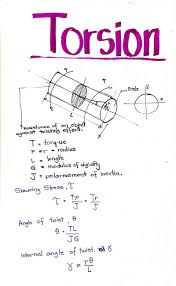 Torsion
Circle
Resistance of an object
against twisting effect.
T = torque
ρ or r = radius
L = length
G = modulus of rigidity
J = polar moment of inertia.
Shearing Stress, τ
τ = Tρ/J = Tr/J
Angle of twist, θ
θ = TL/JG
Internal angle of twist, γ
γ = rθ/L